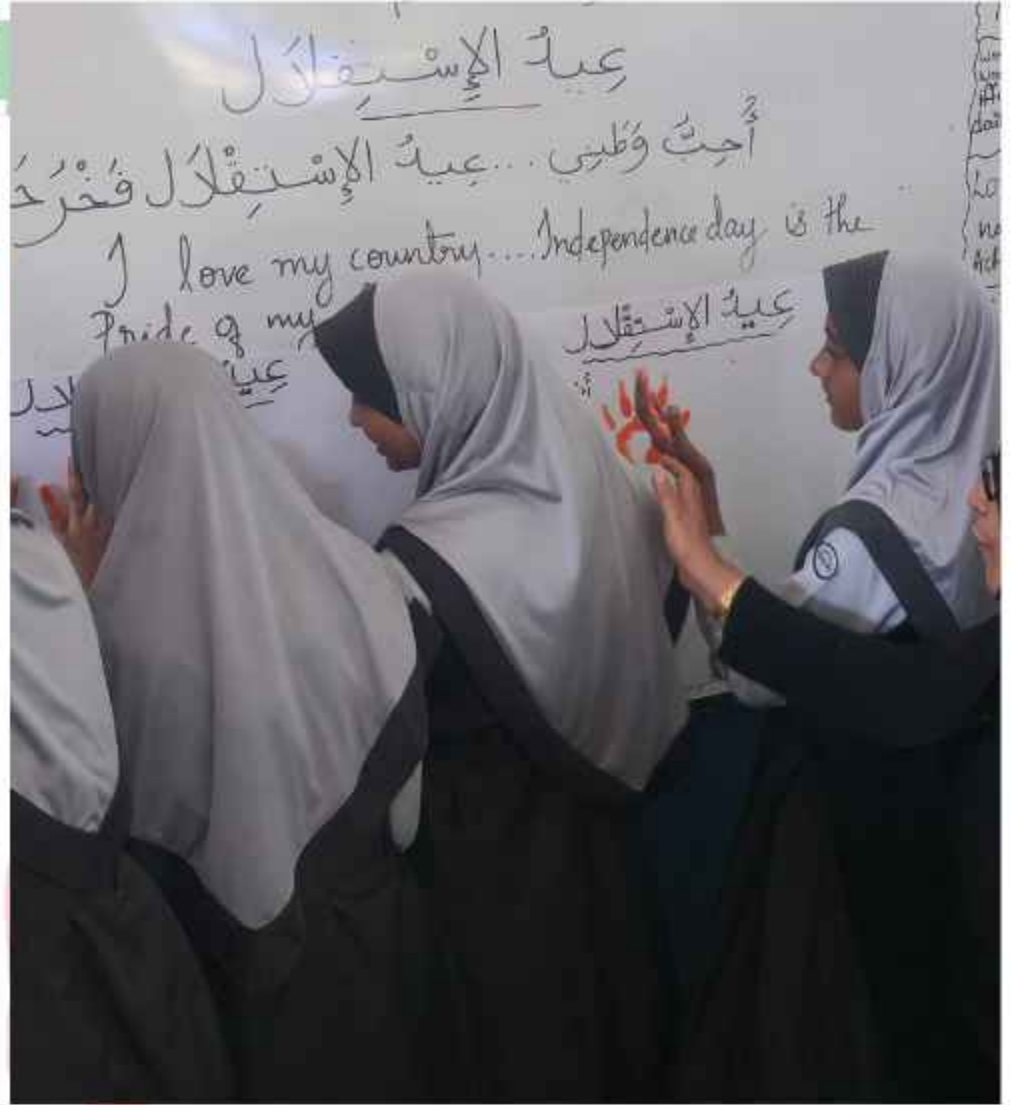 عِيدُ الإِسْتِقِلَال
أُحِبُّ وَطَنِي ... عِيدُ الإِسْتِقْلَال فَخْرُ
I love my country.... Independence day is the
Pride of my
عِيدُ الإِسْتِقِلال